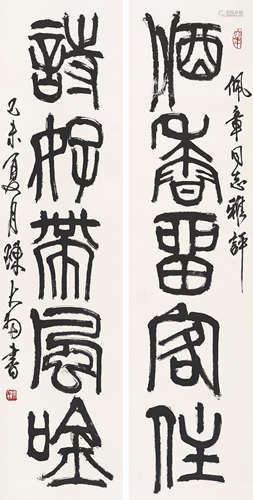 酒香留客住
佩章同志雅評
詩好帶風吟
乙未夏月陳大羽書